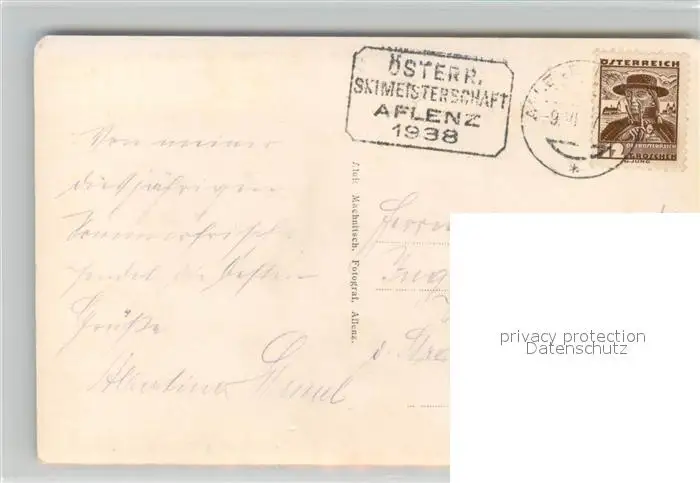 ÖSTERR.
SKIMEISTERSCHAFT
AFLENZ
1938
ÖSTERREICH
GROSCHEN
Von meiner
diesjährigen
Sommerfrische
sendet die besten
Grüße
Alois Machnitsch, Fotograf, Aflenz.
Herrn
privacy protection
Datenschutz